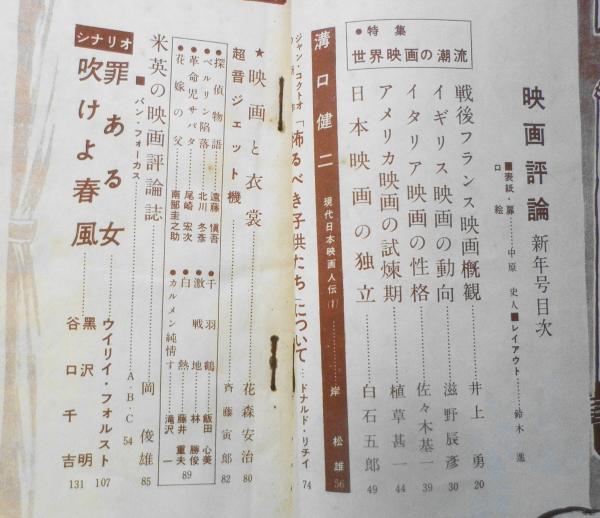 映画評論 新年号目次
■表紙・扉・口絵……中原史人 ■レイアウト……鈴木進
●特集
世界映画の潮流
戦後フランス映画概観……井上勇 20
イギリス映画の動向……滋野辰彦 30
イタリア映画の性格……佐々木基一 39
アメリカ映画の試煉期……植草甚一 44
日本映画の独立……白石五郎 49
溝口健二 現代日本映画人伝(1)……岸松雄 56
ジャン・コクトオ
「怖るべき子供たち」について……ドナルド・リチイ 74
★映画と衣裳……花森安治 80
超音ジェット機……斉藤寅郎 82
●探偵物語……遠藤慎吾
●ベルリン陥落……北川冬彦
●革命児サパタ……尾崎宏次
●花嫁の父……南部圭之助
●千羽鶴……飯田心美
●激戦地……林勝俊
●白熱……藤井重夫
●カルメン純情す……滝沢一
89
米英の映画評論誌……岡俊雄 85
■パン・フォーカス……A・B・C 54
シナリオ
罪ある女……ウイリイ・フォルスト 107
吹けよ春風……黒沢明 谷口千吉 131